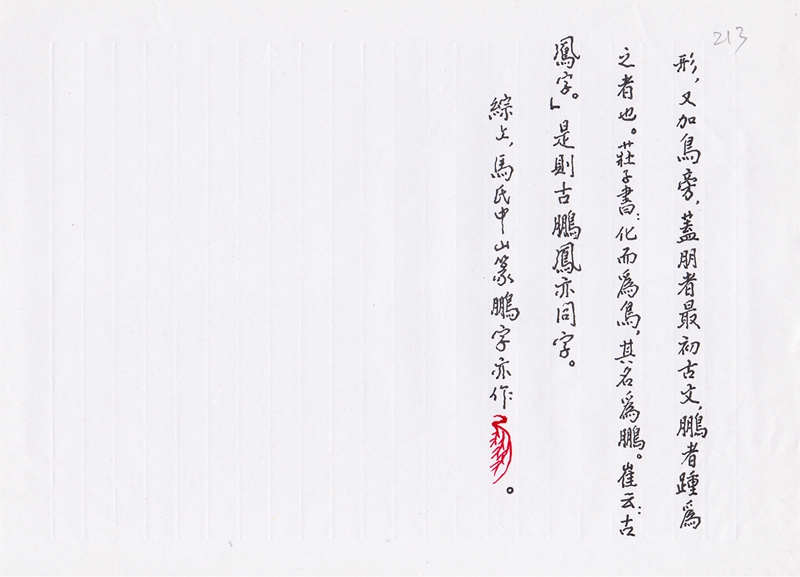 213
形，又加鳥旁，蓋朋者最初古文，鵬者踵爲
之者也。莊子書：化而爲鳥，其名爲鵬。崔云：古
鳳字。」是則古鵬鳳亦同字。
綜上，馬氏中山篆鵬字亦作。